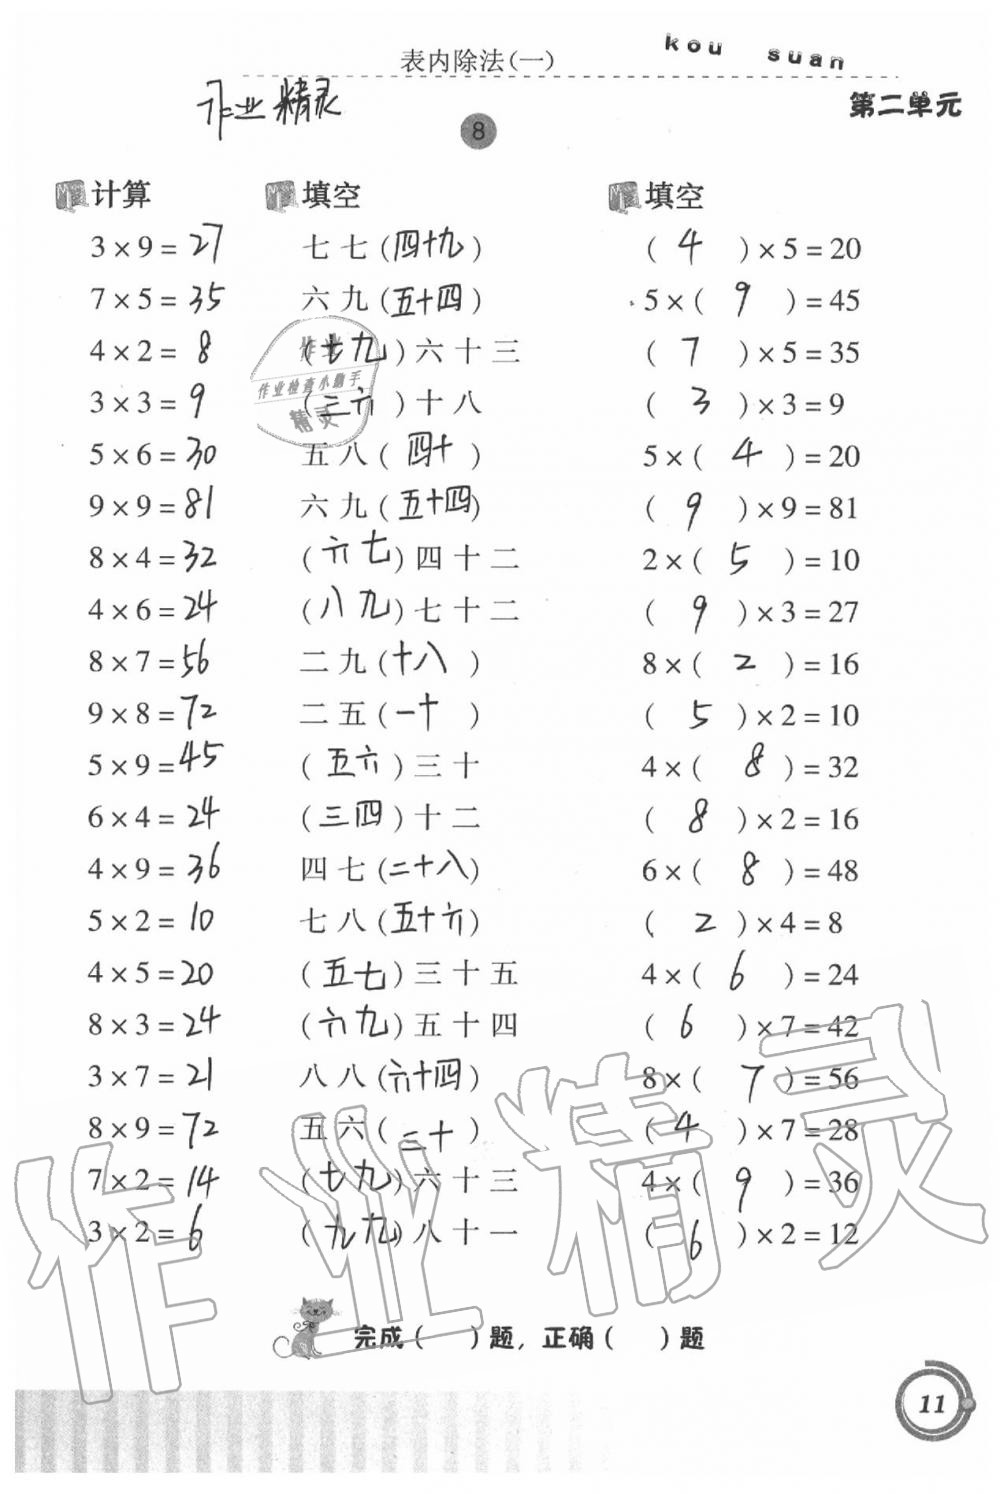 kou suan
表内除法(一)
第二单元
作业精灵
8
计算
3×9=27
7×5=35
4×2=8
3×3=9
5×6=30
9×9=81
8×4=32
4×6=24
8×7=56
9×8=72
5×9=45
6×4=24
4×9=36
5×2=10
4×5=20
8×3=24
3×7=21
8×9=72
7×2=14
3×2=6
填空
七七(四十九)
六九(五十四)
(七九)六十三
(三六)十八
五八(四十)
六九(五十四)
(六七)四十二
(八九)七十二
二九(十八)
二五(一十)
(五六)三十
(三四)十二
四七(二十八)
七八(五十六)
(五七)三十五
(六九)五十四
八八(六十四)
五六(三十)
(七九)六十三
(九九)八十一
填空
(4)×5=20
5×(9)=45
(7)×5=35
(3)×3=9
5×(4)=20
(9)×9=81
2×(5)=10
(9)×3=27
8×(2)=16
(5)×2=10
4×(8)=32
(8)×2=16
6×(8)=48
(2)×4=8
4×(6)=24
(6)×7=42
8×(7)=56
(4)×7=28
4×(9)=36
(6)×2=12
作业
作业检查小助手
精灵
作业精灵
完成(　)题，正确(　)题
11